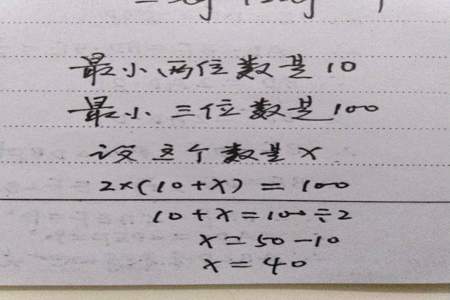 最小两位数是10
最小三位数是100
设这个数是x
2×(10+x)=100
10+x=100÷2
x=50-10
x=40